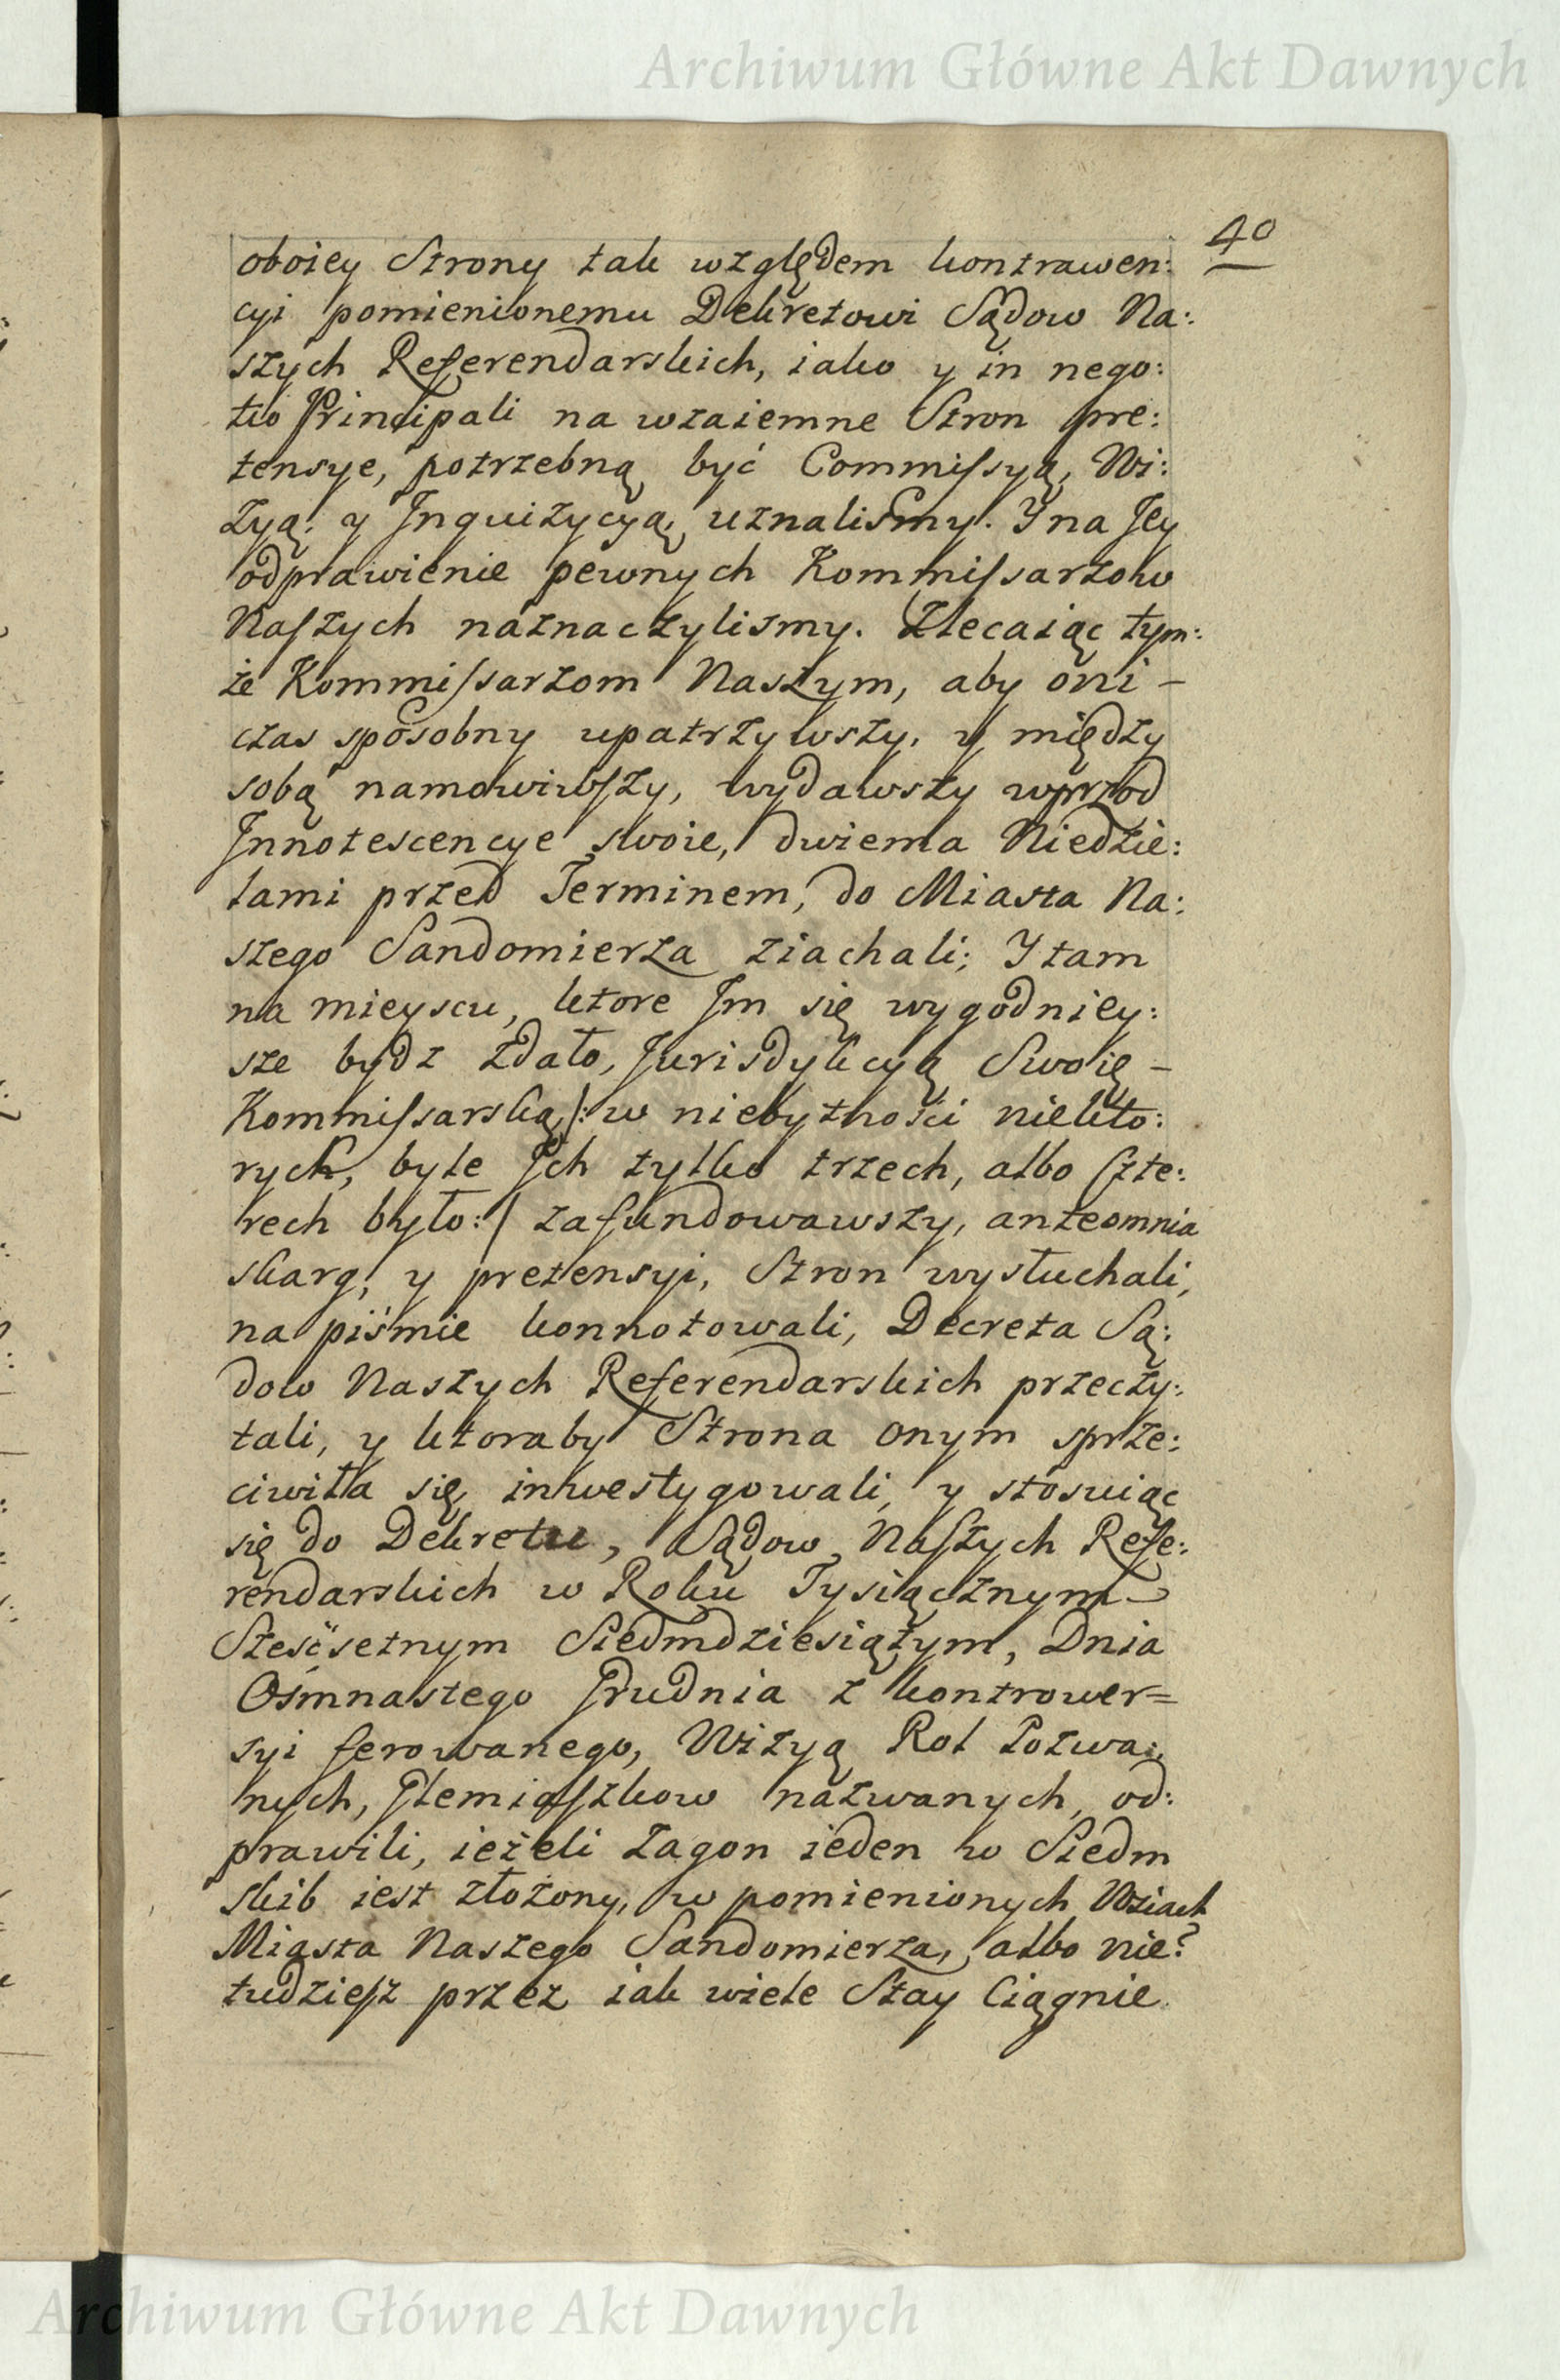 Archiwum Główne Akt Dawnych
40
oboiey Strony tak względem kontrawen:
cyi pomienionemu Dekretowi Sądow Na:
szych Referendarskich, iako y in nego:
tio Principali na wzaiemne Stron pre:
tensye, potrzebną być Commissyą, Wi:
zyą; y Inquizycyą, uznalismy. Y na Jey
odprawienie pewnych Kommissarzow
Naszych náznaczylismy. Zlecaiąc tym:
że Kommissarzom Naszym, aby oni –
czas sposobny upatrzywszy, y między
sobą namowiwszy, wydawszy wprzod
Innotescencye swoie, dwiema Niedzie:
lami przed Terminem, do Miasta Na:
szego Sandomierza ziachali; Y tam
na mieyscu, ktore Jm się wygodniey:
sze bydz zdało, Jurisdykcyą Swoię –
Kommissarską /: w niebytności niekto:
rych, byle Jch tylko trzech, albo Czte:
rech było: / zafundowawszy, anteomnia
skarg, y pretensyi, Stron wysłuchali,
na piśmie konnotowali, Decreta Są:
dow Naszych Referendarskich przeczy:
tali, y ktoraby Strona onym sprze:
ciwiła się, inwestygowali, y stosuiąc
się do Dekretu, Sądow Naszych Refe:
rendarskich w Roku Tysiącznym –
Sześćsetnym Siedmdziesiątym, Dnia
Osmnastego Grudnia z kontrower=
syi ferowanego, Wizyą Rol Pozwa:
nych, Płemiąszkow názwanych, od:
prawili, ieżeli Zagon ieden w Siedm
skib iest złożony, w pomienionych Wsiach
Miasta Naszego Sandomierza, albo nie?
tudziesz przez iak wiele Stay Ciągnie
Archiwum Główne Akt Dawnych